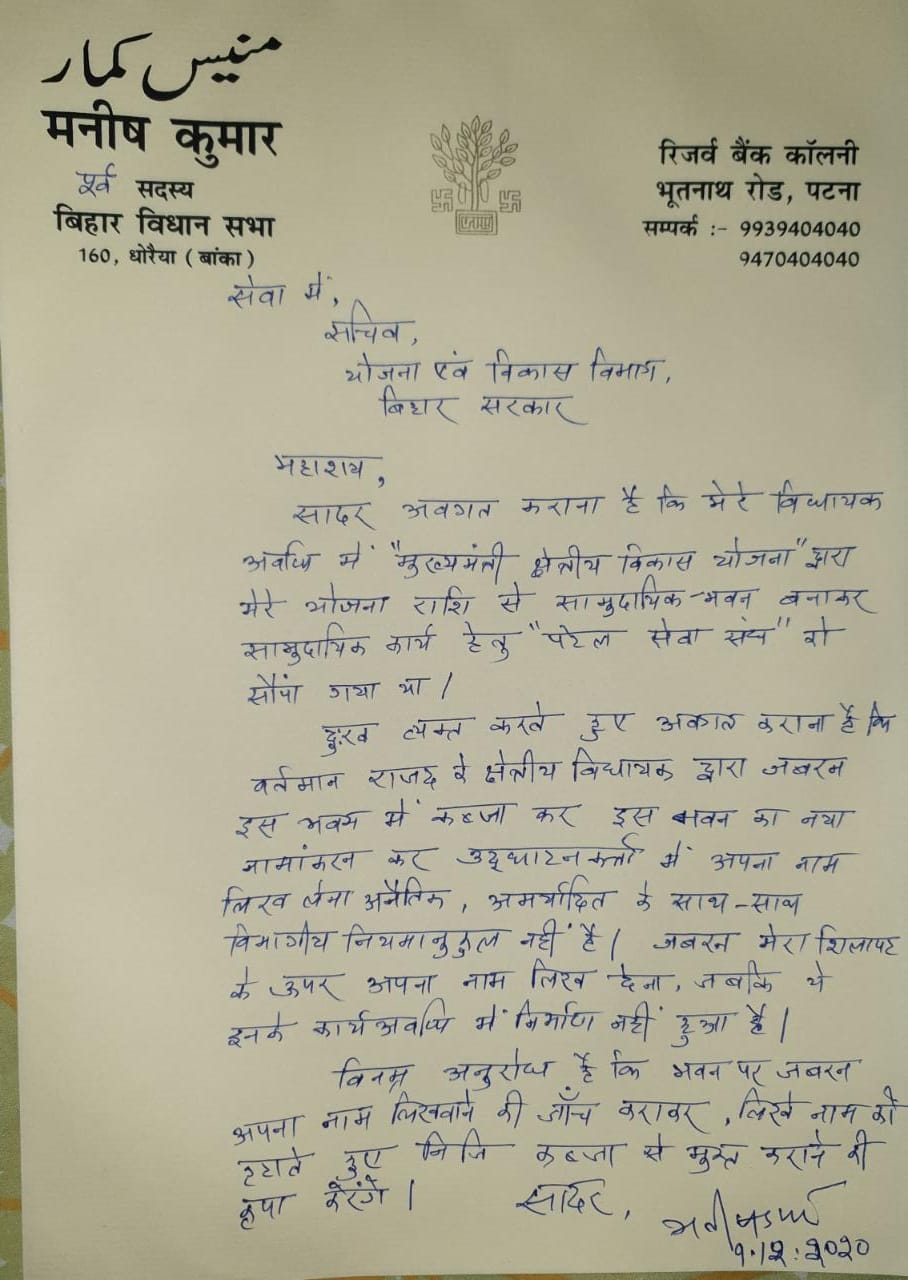 منیس کمار
मनीष कुमार
पूर्व सदस्य
बिहार विधान सभा
160, धोरैया ( बांका )
रिजर्व बैंक कॉलनी
भूतनाथ रोड, पटना
सम्पर्क :- 9939404040
9470404040
सेवा में,
सचिव,
योजना एवं विकास विभाग,
बिहार सरकार
महाशय,
सादर अवगत कराना है कि मेरे विधायक
अवधि में "मुख्यमंत्री क्षेत्रीय विकास योजना" द्वारा
मेरे योजना राशि से सामुदायिक-भवन बनाकर
सामुदायिक कार्य हेतु "पटेल सेवा संघ" को
सौंपा गया था।
दुःख व्यक्त करते हुए अवगत कराना है कि
वर्तमान राजद के क्षेत्रीय विधायक द्वारा जबरन
इस भवन में कब्जा कर इस भवन का नया
नामांकरन कर उद्घाटनकर्ता में अपना नाम
लिख लेना अनैतिक, अमर्यादित के साथ-साथ
विभागीय नियमानुकुल नहीं है। जबरन मेरा शिलापट
के ऊपर अपना नाम लिख देना, जबकि ये
इनके कार्यअवधि में निर्माण नहीं हुआ है।
विनम्र अनुरोध है कि भवन पर जबरन
अपना नाम लिखवाने की जाँच कराकर, लिखे नाम को
हटाते हुए निजि कब्जा से मुक्त कराने की
कृपा करेंगे। सादर,
9.12.2020